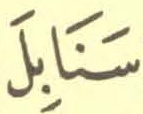 سَنَابِلَ